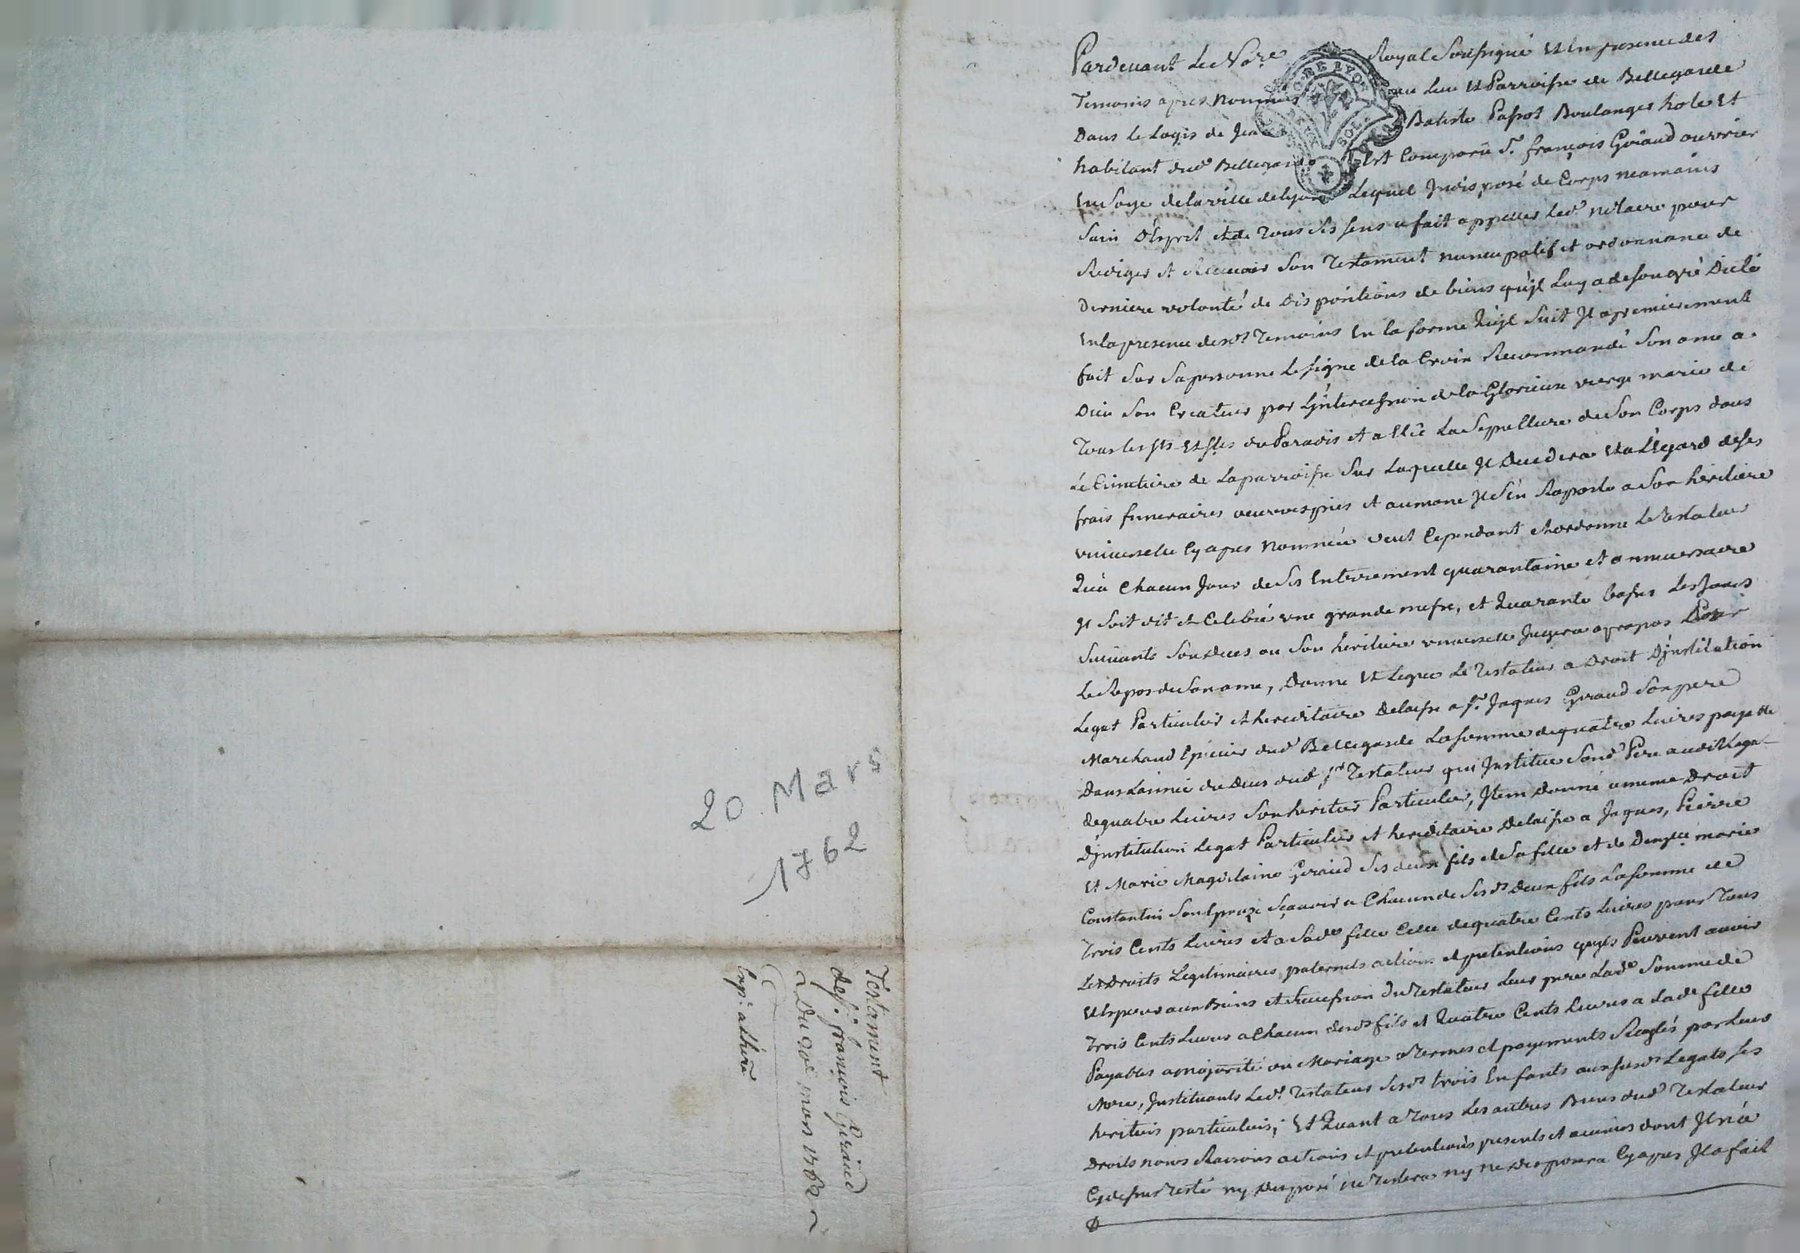 20 Mars
1762
Testament
de Sr. françois Giraud
du 20e mars 1762
Expn. a lhere
Pardevant Le Nore Royal Soussigné Et En presence des
Temoins apres nommés au Lieu Et Parroisse de Bellegarde
Dans le Logis de Jean Batiste Passot Boulanger hote Et
habitant dud Bellegarde Est Comparu Sr. françois Giraud ouvrier
En Soye de la ville de Lyon Lequel Indisposé de Corps neamoins
Sain D'Esprit et de Tous Ses Sens a fait appeller Led Notaire pour
Rediger et Recevoir Son Testament nuncupatif et ordonnance de
Derniere volonté de Dispositions de biens qu'il Luy a de Son gré Dicté
En la presence desd Temoins En la forme qu'il Suit Il a premierement
fait Sur Sa personne Le Signe de la Croix Recommandé Son ame a
Dieu Son Createur par L'intercession de la Glorieuse vierge marie de
Tous les Sts Et Stes du Paradis et a Elû La Sepulture de Son Corps dans
Le Cimetiere de La parroisse Sur Laquelle Il Decedera Et a L'Egard de Ses
frais funeraires oeuvres pies et aumone Il S'en Raporte a Son heritiere
universelle Cy apres Nommée veut Cependant et ordonne Le Testateur
Qu'a Chacun Jour de Ses Enterrement quarantaine et anniversaire
Il Soit dit et Celebré une grande messe, et Quarante basses Les Jours
Suivants Son deces ou Son heritiere universelle Jugera apropos Pour
Le Repos de Son ame, Donne Et Legue Le Testateur a Droit D'institution
Legat Particulier et hereditaire Delaisse a Sr. Jaques Giraud Son pere
Marchand Epicier dud Bellegarde La Somme de quatre Livres payable
Dans L'année du deces dud Sr Testateur qui Institue Sond Pere audit Legat
de quatre Livres Son heritier Particulier, Item donne a meme Droit
D'institution Legat Particulier et hereditaire Delaisse a Jaques, Pierre
Et Marie Magdelaine Giraud Ses deux fils et Sa fille et de Demlle marie
Constantin Son Epouze Sçavoir a Chacun de Sesd deux fils La Somme de
Trois Cents Livres et a Sade fille Celle de quatre Cents Livres pour Tous
Les Droits Legitimaires, paternels actions et pretentions qu'ils Peuvent avoir
Et Esperer aux Biens et Succession du Testateur Leur pere Lade Somme de
Trois Cents Livres a Chacun desd fils et Quatre Cents Livres a Lade fille
Payables a majorité ou Mariage a Termes et payements Reglés par Leur
Mere, Instituants Led. Testateur Sesd trois Enfants auxsusd Legats Ses
heritiers particuliers; Et Quant a Tous Les autres Biens dud Testateur
Droits noms Raisons actions et pretentions presents et avenirs dont Il n'a
Cy dessus Testé ny Disposé ne Testera ny ne Disposera Cy apres Il a fait